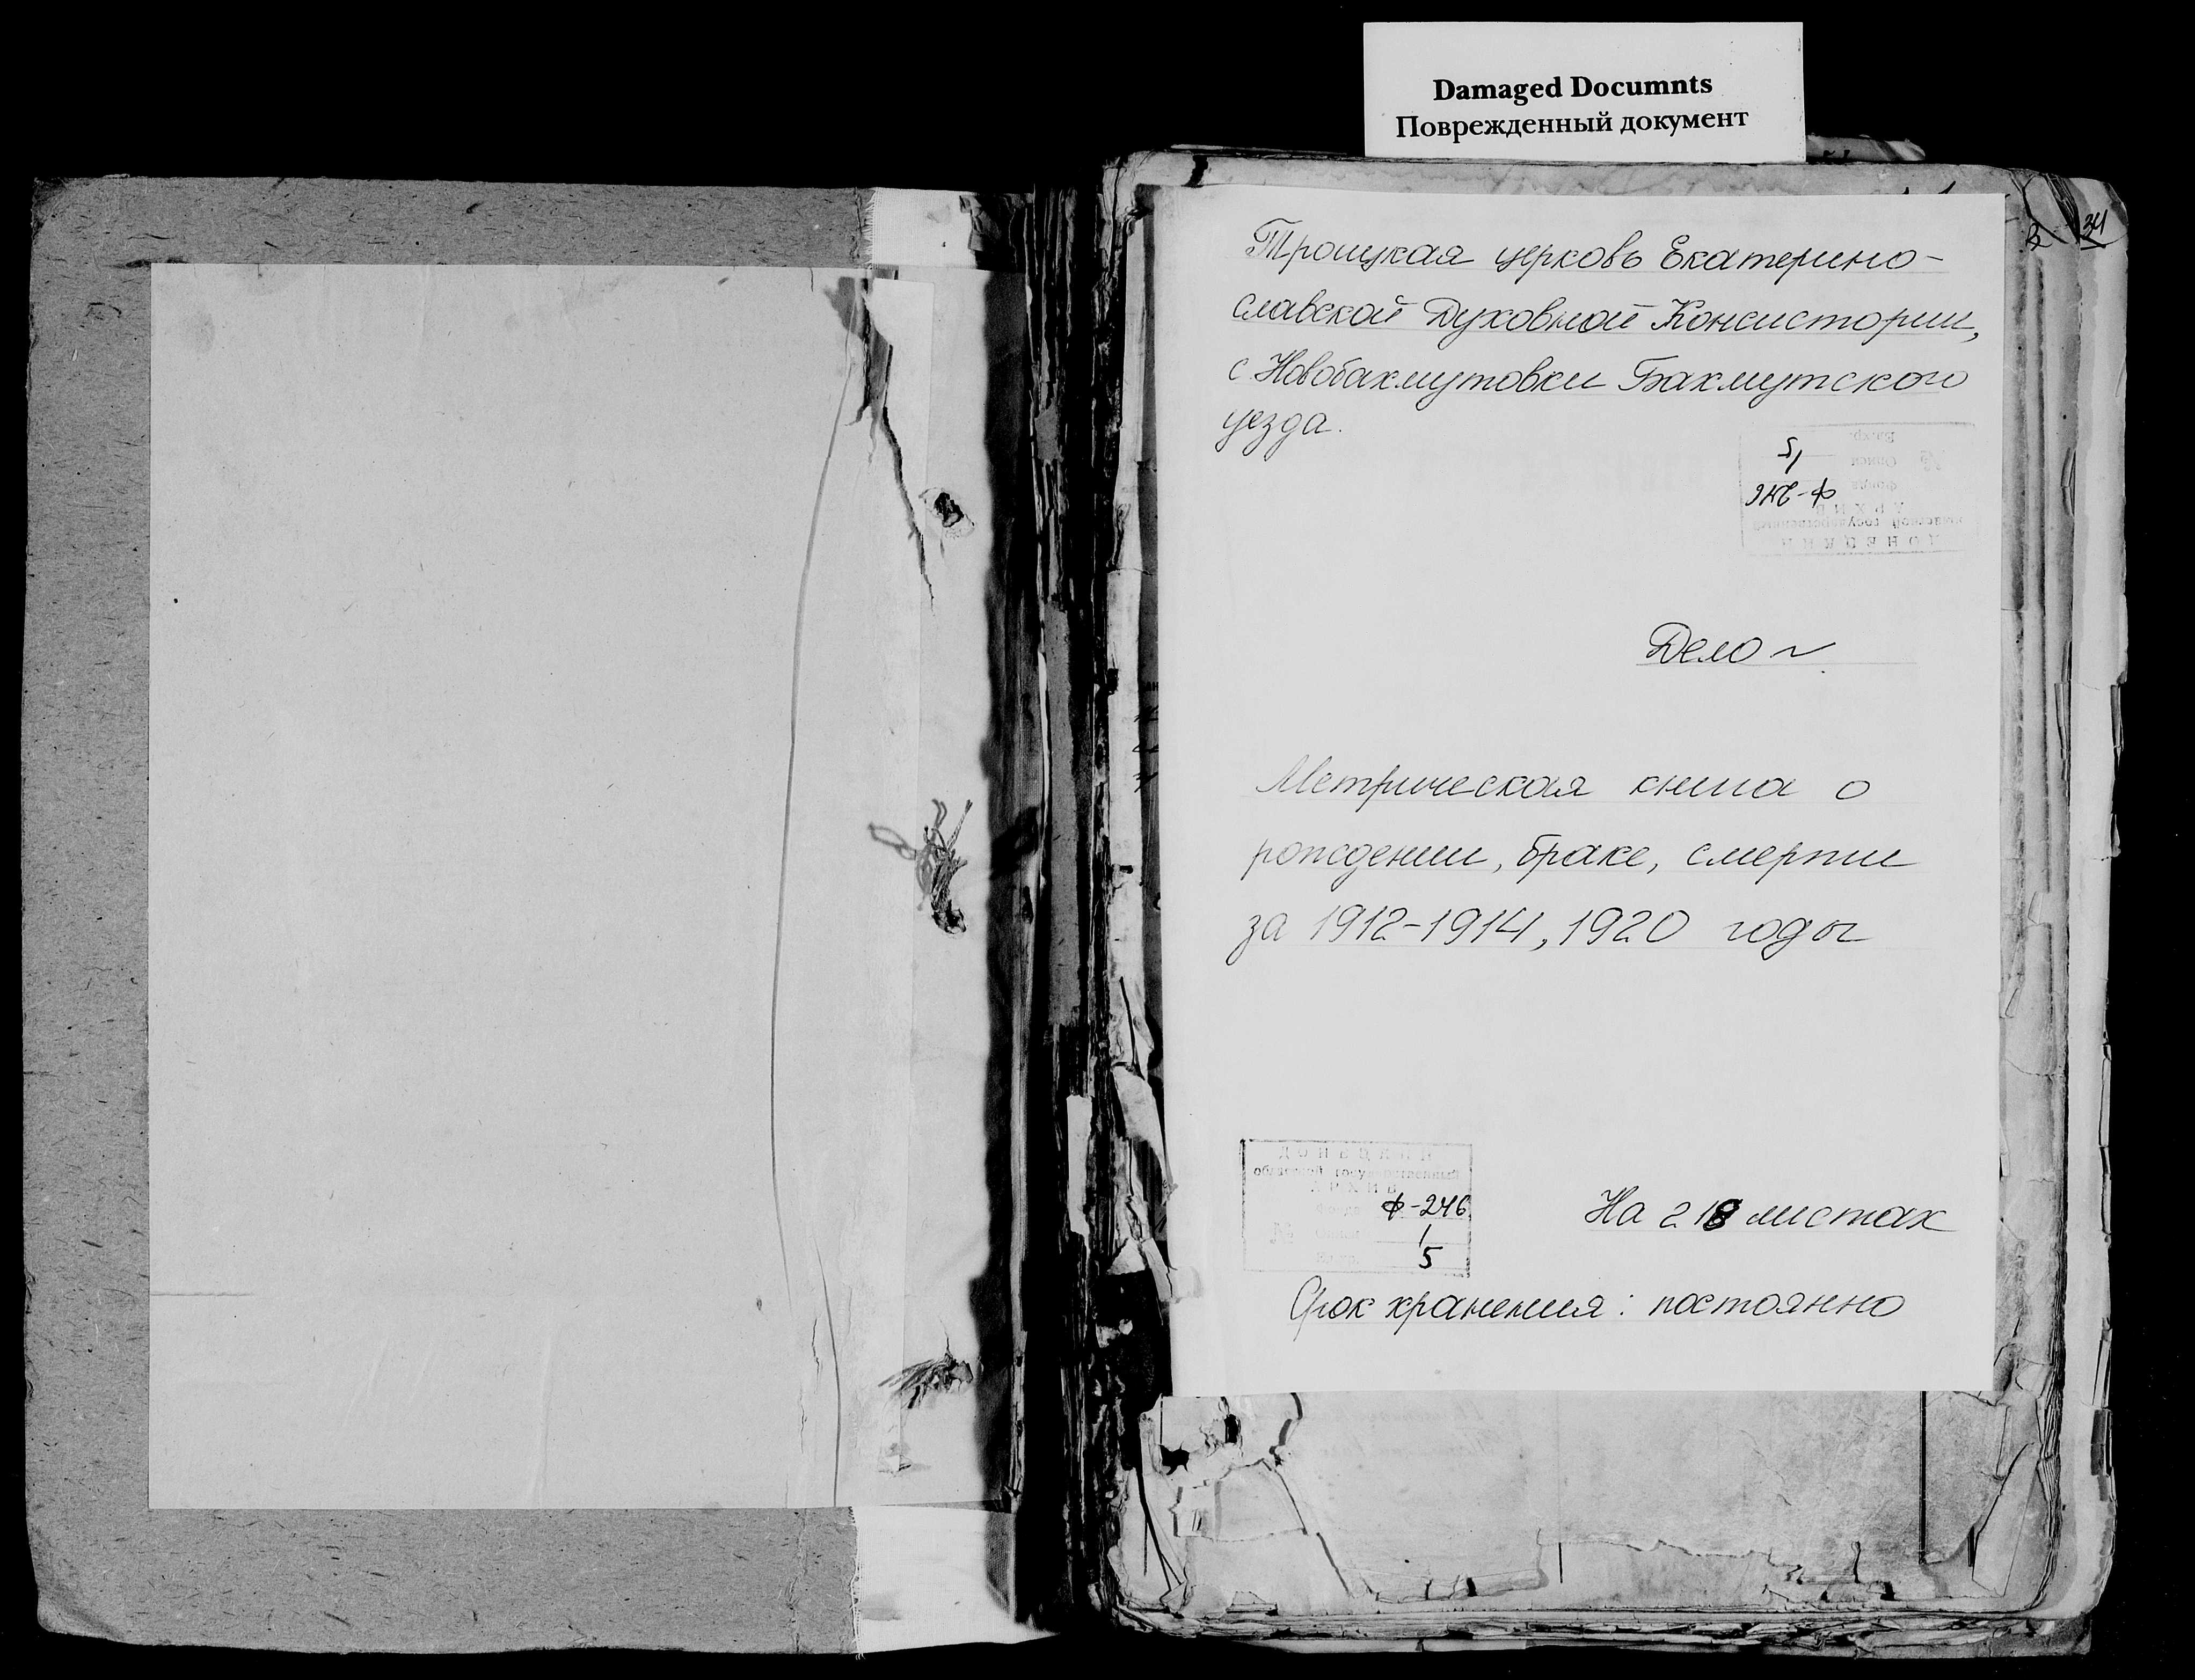 Damaged Documnts
Поврежденный документ
34
Троицкая церковь Екатерино-
славской Духовной Консистории,
с. Новобахмутовки Бахмутского
уезда.
ДОНЕЦКИЙ
областной государственный
АРХИВ
Фонда Ф-246
Описи 1
5
Дело ~
Метрическая книга о
рождении, браке, смерти
за 1912-1914, 1920 годы
ДОНЕЦКИЙ
областной государственный
АРХИВ
Фонда Ф-246
№ Описи 1
Ед. хр. 5
На 218 листах
Срок хранения: постоянно